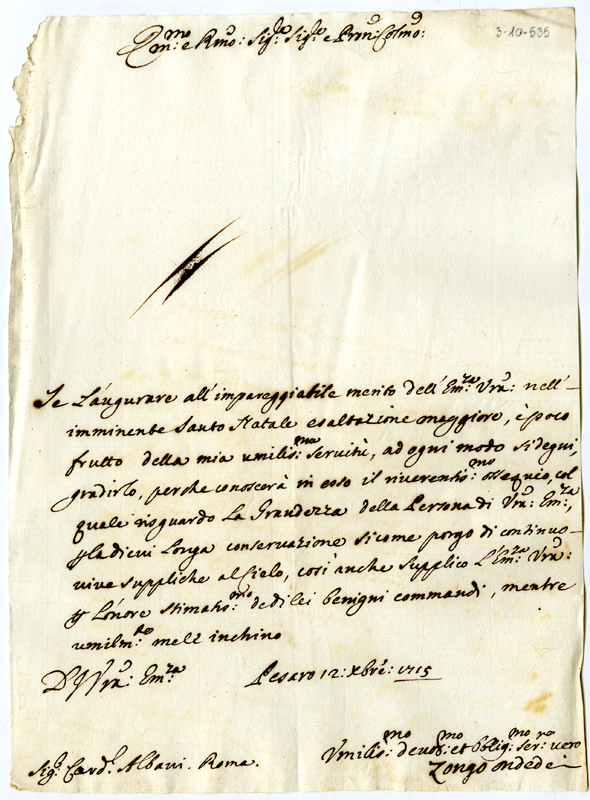 3-10-535
Em:mo e Rmo: Sig:re Sig:re e Pron: Colmo:
Se L'augurare all'impareggiabile merito dell'Em:za Vra: nell'
imminente Santo Natale esaltazione maggiore, è poco
frutto della mia umilis:ma servitù, ad ogni modo si degni,
gradirlo, perche conoscerà in esso il riverentis:mo ossequio, col
quale risguardo La Grandezza della Persona di Vra: Em:za,
p la di cui Longa conservazione sicome porgo di continuo
vive suppliche al Cielo, così anche supplico L'Em:za Vra:
p L'onore stimatis:mo de di lei benigni commandi, mentre
umilm:te me li inchino
D. Vra: Em:za
Pesaro 12: Xbre: 1715
Sig:r Card:l Albani. Roma.
Umilis:mo devot:mo et Oblig:mo ser:re vero
Zongo Ondedei